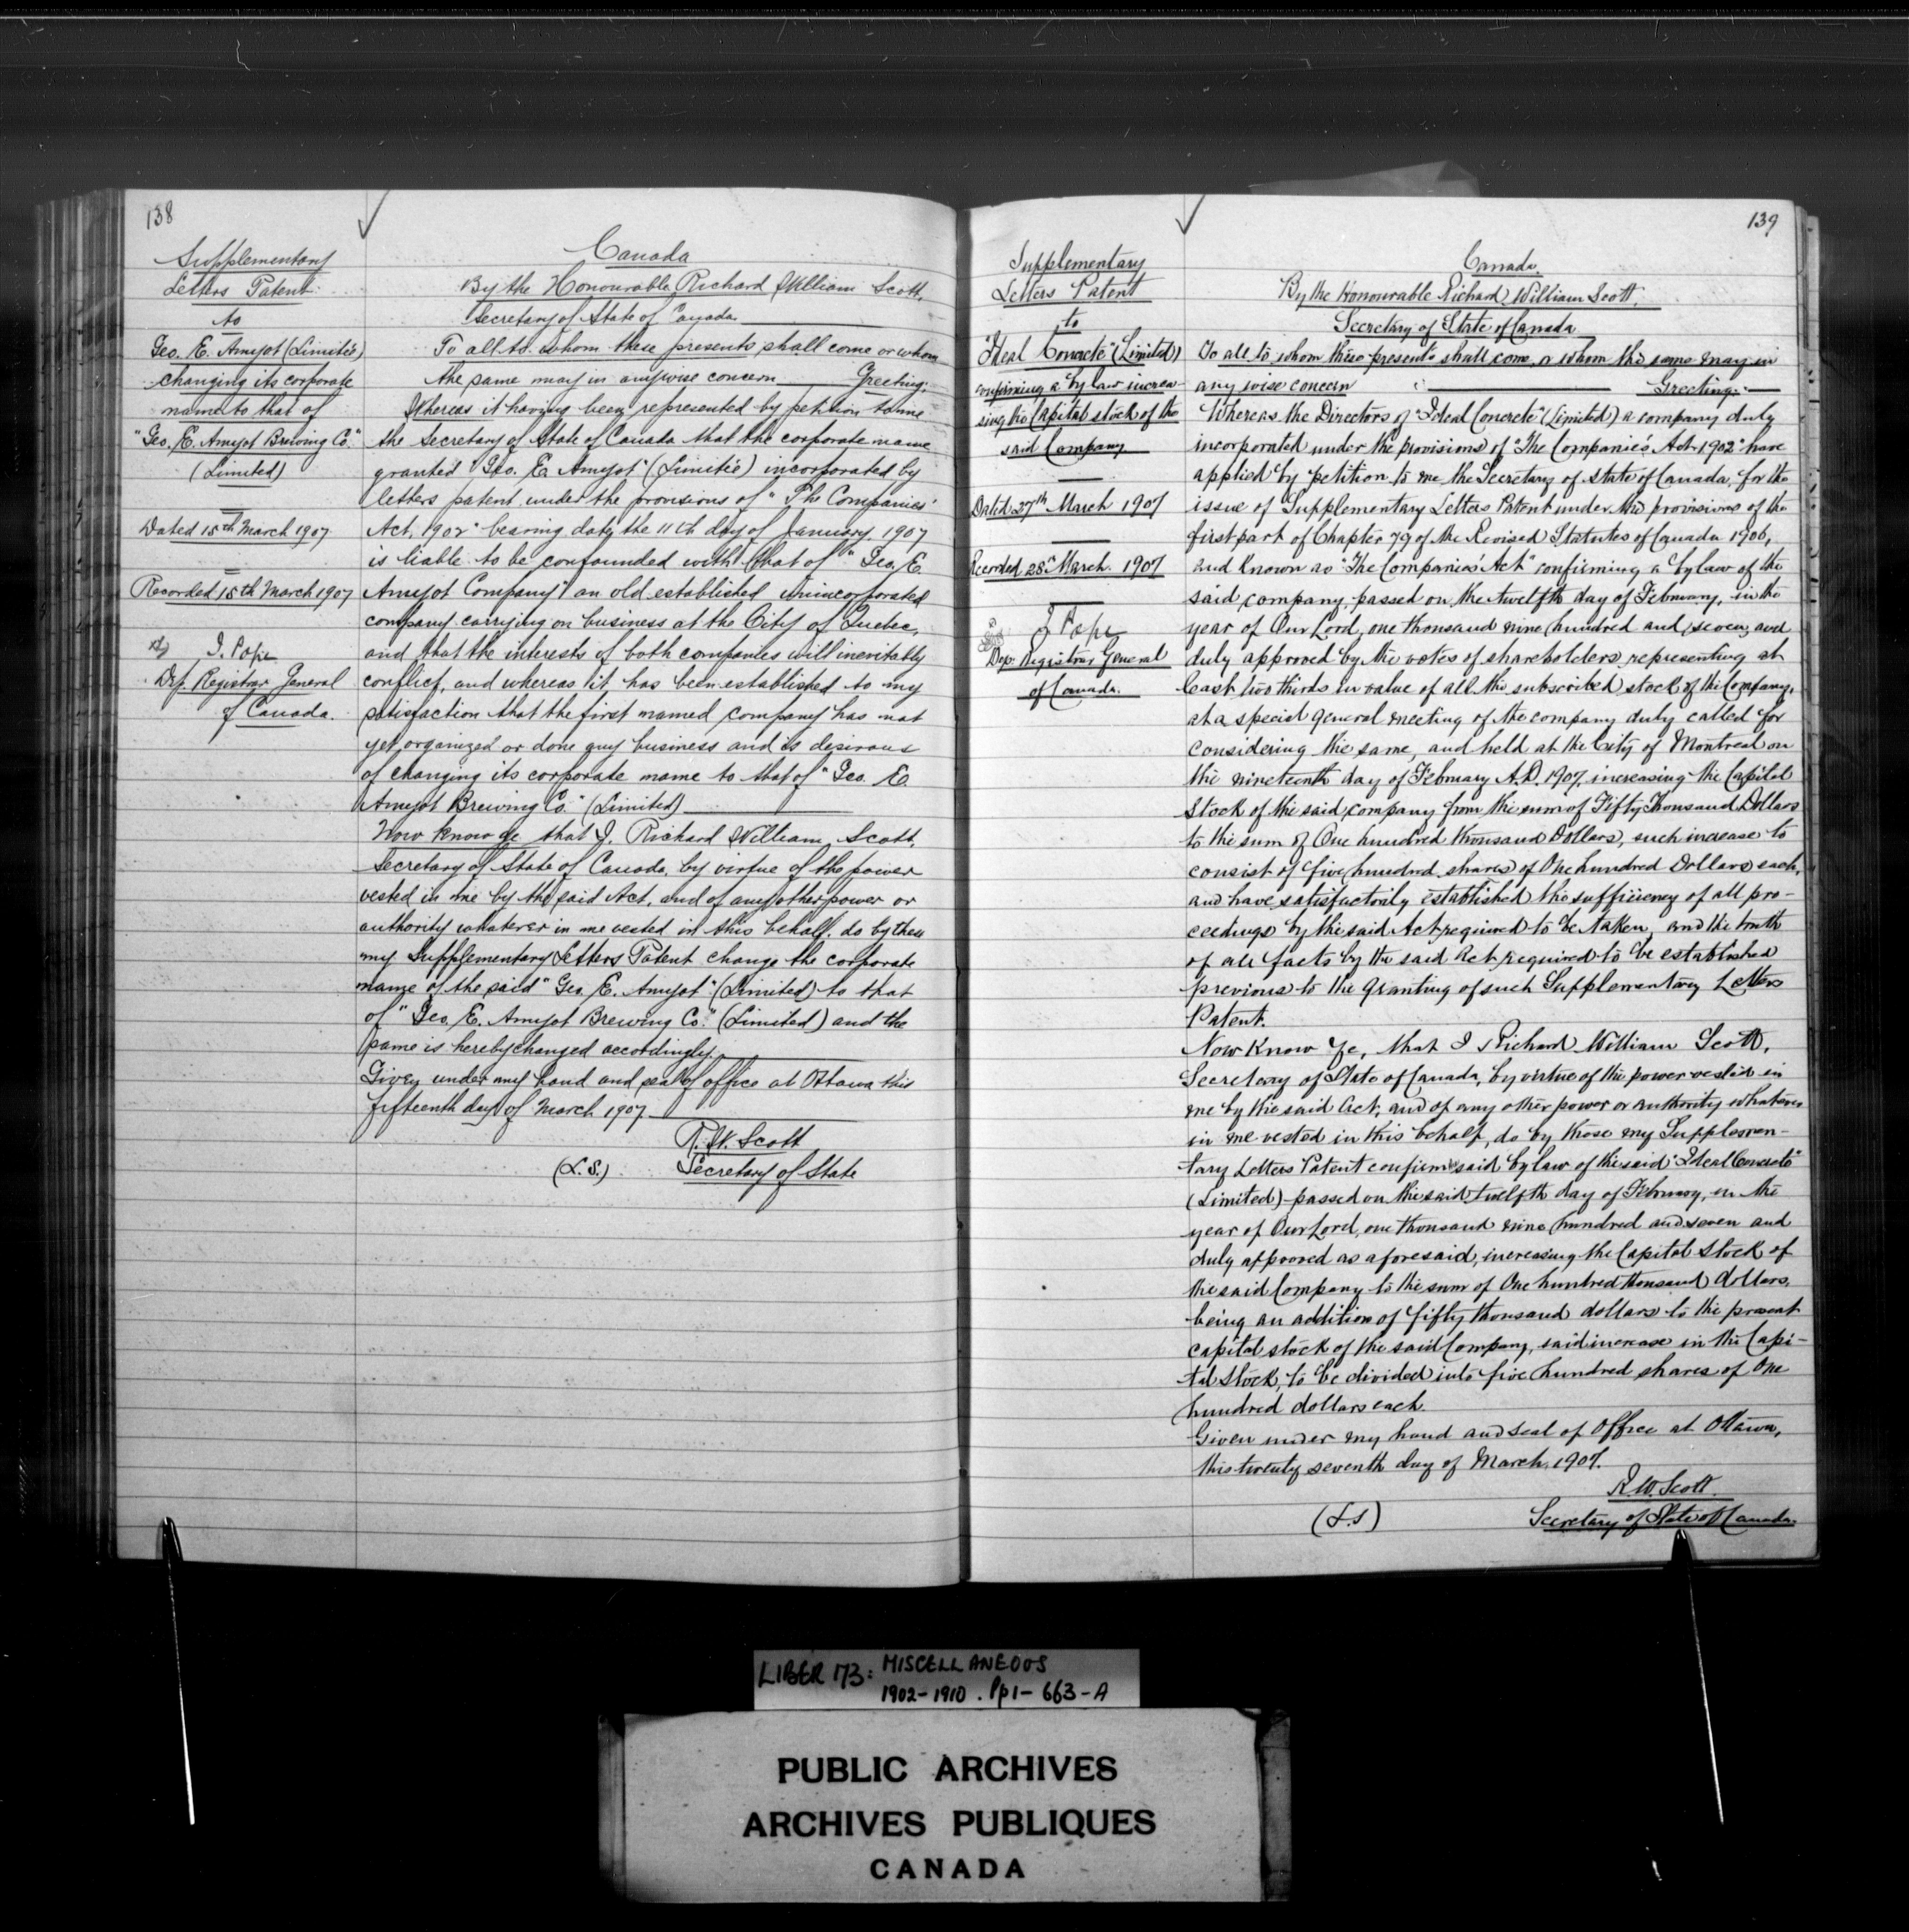 138
Supplementary
Letters Patent
to
Geo. E. Amyot (Limitée)
changing its corporate
name to that of
"Geo. E. Amyot Brewing Co."
(Limited)
Dated 15th March 1907
Recorded 15th March 1907
J. Pope
Dep. Registrar General
of Canada.
Canada
By the Honourable Richard William Scott,
Secretary of State of Canada
To all to whom these presents shall come or whom
the same may in anywise concern Greeting:
Whereas it having been represented by petition to me
the Secretary of State of Canada that the corporate name
granted "Geo. E. Amyot" (Limitée) incorporated by
letters patent under the provisions of "The Companies'
Act, 1902" bearing date the 11th day of January, 1907
is liable to be confounded with that of "Geo. E.
Amyot Company" an old established unincorporated
company carrying on business at the City of Quebec,
and that the interests of both companies will inevitably
conflict, and whereas it has been established to my
satisfaction that the first named company has not
yet organized or done any business and is desirous
of changing its corporate name to that of "Geo. E.
Amyot Brewing Co." (Limited)
Now know ye that I, Richard William Scott,
Secretary of State of Canada, by virtue of the power
vested in me by the said Act, and of any other power or
authority whatever in me vested in this behalf, do by these
my Supplementary Letters Patent change the corporate
name of the said "Geo. E. Amyot" (Limited) to that
of "Geo. E. Amyot Brewing Co." (Limited) and the
same is hereby changed accordingly.
Given under my hand and seal of office at Ottawa this
fifteenth day of March 1907
R. W. Scott
(L.S.) Secretary of State
139
Supplementary
Letters Patent
to
"Ideal Concrete" (Limited)
confirming a by law increa-
sing the Capital stock of the
said Company
Dated 27th March 1907
Recorded 28th March. 1907
J Pope
Dep. Registrar General
of Canada.
Canada.
By the Honourable Richard William Scott,
Secretary of State of Canada
To all to whom these presents shall come, or whom the same may in
any wise concern Greeting:
Whereas the Directors of "Ideal Concrete" (Limited) a company duly
incorporated under the provisions of "The Companies Act 1902" have
applied by petition to me the Secretary of state of Canada, for the
issue of Supplementary Letters Patent under the provisions of the
first part of Chapter 79 of the Revised Statutes of Canada 1906,
and known as "The Companies' Act" confirming a bylaw of the
said company, passed on the twelfth day of February, in the
year of Our Lord, one thousand nine hundred and seven, and
duly approved by the votes of shareholders representing at
least two thirds in value of all the subscribed stock of the Company,
at a special general meeting of the company duly called for
considering the same, and held at the City of Montreal on
the nineteenth day of February A.D. 1907, increasing the Capital
Stock of the said company from the sum of Fifty Thousand Dollars
to the sum of One hundred thousand Dollars, such increase to
consist of five hundred shares of One hundred Dollars each,
and have satisfactorily established the sufficiency of all pro-
ceedings by the said Act required to be taken, and the truth
of all facts by the said Act required to be established
previous to the granting of such Supplementary Letters
Patent.
Now Know Ye, that I Richard William Scott,
Secretary of State of Canada, by virtue of the power vested in
me by the said Act, and of any other power or authority whatever
in me vested in this behalf, do by these my Supplemen-
tary Letters Patent confirm said bylaw of the said "Ideal Concrete"
(Limited) passed on the said twelfth day of February, in the
year of Our Lord, one thousand nine hundred and seven and
duly approved as aforesaid, increasing the Capital Stock of
the said Company to the sum of One hundred thousand dollars,
being an addition of fifty thousand dollars to the present
capital stock of the said Company, said increase in the Capi-
tal Stock, to be divided into five hundred shares of One
hundred dollars each.
Given under my hand and seal of Office at Ottawa,
this twenty seventh day of March. 1907.
R. W. Scott.
(L.S) Secretary of State of Canada.
LIBER 173: MISCELLANEOUS
1902-1910. Pp1-663-A
PUBLIC ARCHIVES
ARCHIVES PUBLIQUES
CANADA